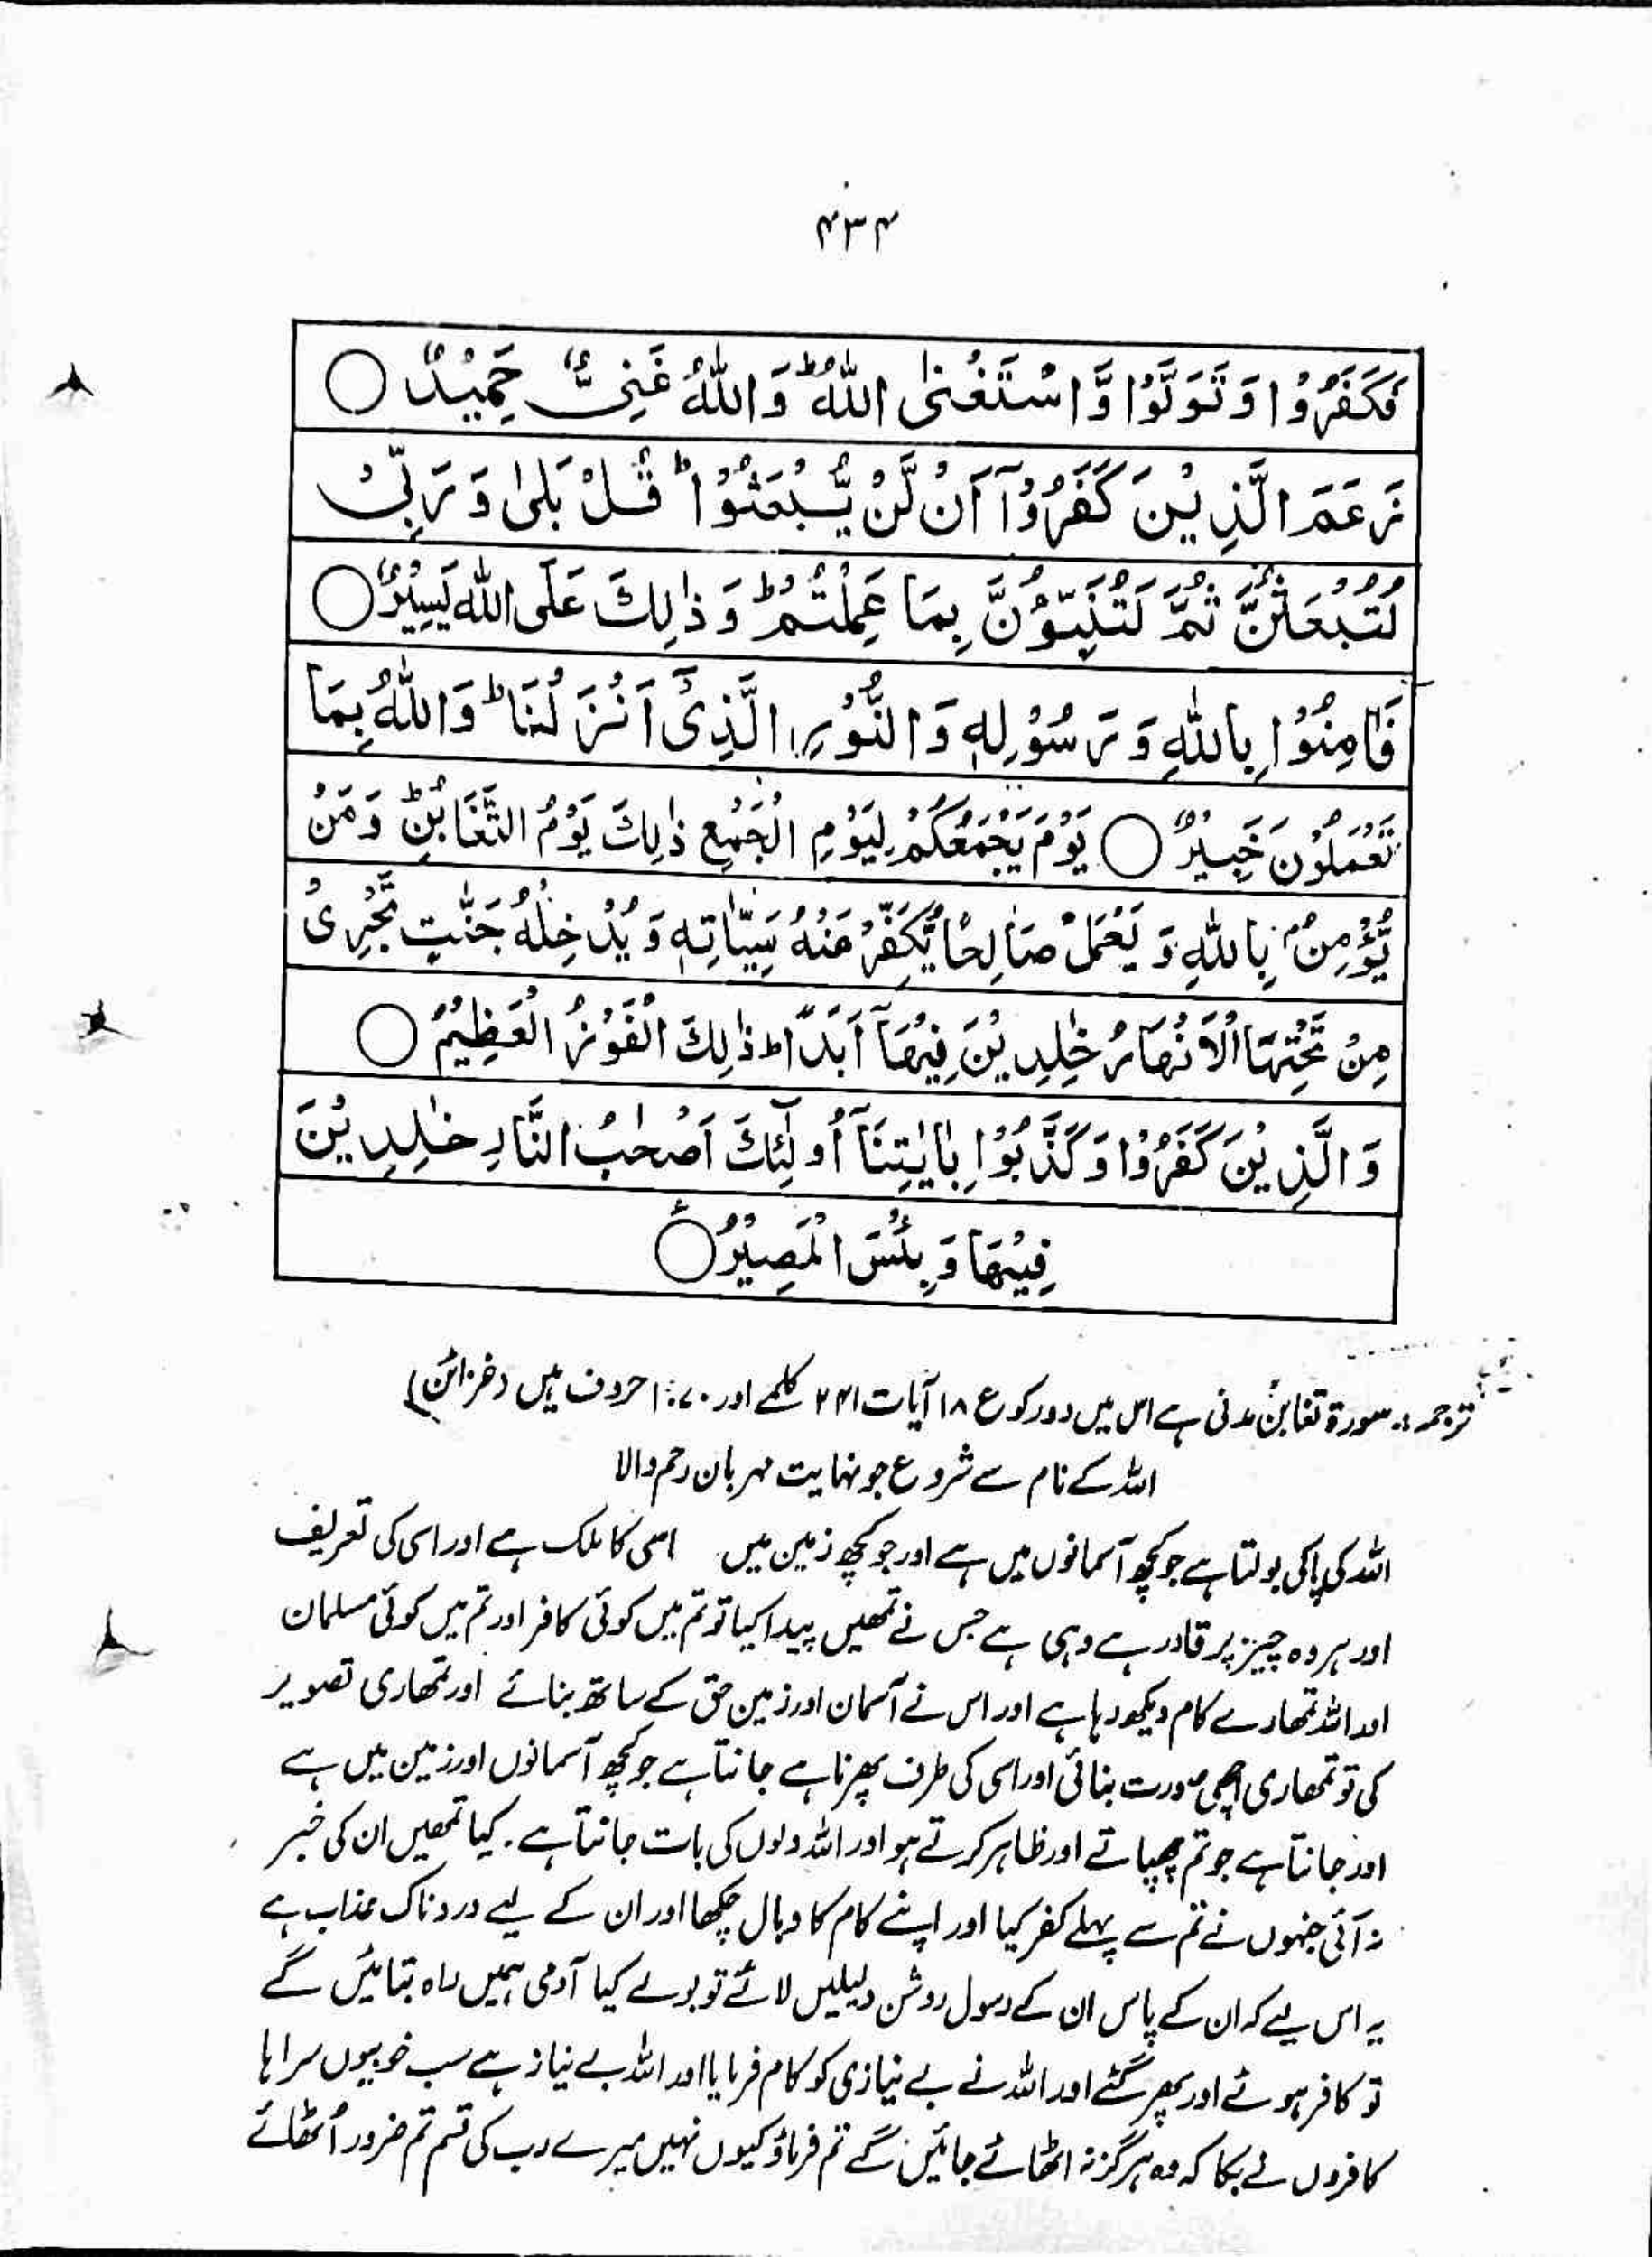 ۴۳۴
فَكَفَرُوْا وَ تَوَلَّوْا وَّ اسْتَغْنَى اللّٰهُ ؕ وَ اللّٰهُ غَنِیٌّ حَمِيْدٌ ○
زَعَمَ الَّذِيْنَ كَفَرُوْۤا اَنْ لَّنْ يُّبْعَثُوْا ؕ قُلْ بَلٰى وَ رَبِّیْ
لَتُبْعَثُنَّ ثُمَّ لَتُنَبَّؤُنَّ بِمَا عَمِلْتُمْ ؕ وَ ذٰلِكَ عَلَى اللّٰهِ يَسِيْرٌ ○
فَاٰمِنُوْا بِاللّٰهِ وَ رَسُوْلِهٖ وَ النُّوْرِ الَّذِیْۤ اَنْزَلْنَا ؕ وَ اللّٰهُ بِمَا
تَعْمَلُوْنَ خَبِيْرٌ ○ يَوْمَ يَجْمَعُكُمْ لِيَوْمِ الْجَمْعِ ذٰلِكَ يَوْمُ التَّغَابُنِ ؕ وَ مَنْ
يُّؤْمِنْۢ بِاللّٰهِ وَ يَعْمَلْ صَالِحًا يُّكَفِّرْ عَنْهُ سَيِّاٰتِهٖ وَ يُدْخِلْهُ جَنّٰتٍ تَجْرِیْ
مِنْ تَحْتِهَا الْاَنْهَارُ خٰلِدِيْنَ فِيْهَاۤ اَبَدًا ؕ ذٰلِكَ الْفَوْزُ الْعَظِيْمُ ○
وَ الَّذِيْنَ كَفَرُوْا وَ كَذَّبُوْا بِاٰيٰتِنَاۤ اُولٰٓئِكَ اَصْحٰبُ النَّارِ خٰلِدِيْنَ
فِيْهَا وَ بِئْسَ الْمَصِيْرُ ○ ع
ترجمہ :۔ سورۃ تغابن مدنی ہے اس میں دو رکوع ۱۸ آیات ۲۴۱ کلمے اور ۱۰۷۰ حروف ہیں (خزائن)
اللہ کے نام سے شروع جو نہایت مہربان رحم والا
اللہ کی پاکی بولتا ہے جو کچھ آسمانوں میں ہے اور جو کچھ زمین میں اسی کا ملک ہے اور اسی کی تعریف
اور ہر وہ چیز پر قادر ہے وہی ہے جس نے تمھیں پیدا کیا تو تم میں کوئی کافر اور تم میں کوئی مسلمان
اور اللہ تمھارے کام دیکھ رہا ہے اور اس نے آسمان اور زمین حق کے ساتھ بنائے اور تمھاری تصویر
کی تو تمھاری اچھی صورت بنائی اور اسی کی طرف پھرنا ہے جانتا ہے جو کچھ آسمانوں اور زمین میں ہے
اور جانتا ہے جو تم چھپاتے اور ظاہر کرتے ہو اور اللہ دلوں کی بات جانتا ہے۔ کیا تمھیں ان کی خبر
نہ آئی جنہوں نے تم سے پہلے کفر کیا اور اپنے کام کا وبال چکھا اور ان کے لیے دردناک عذاب ہے
یہ اس لیے کہ ان کے پاس ان کے رسول روشن دلیلیں لائے تو بولے کیا آدمی ہمیں راہ بتائیں گے
تو کافر ہوئے اور پھر گئے اور اللہ نے بے نیازی کو کام فرمایا اور اللہ بے نیاز ہے سب خوبیوں سراہا
کافروں نے بکا کہ وہ ہرگز نہ اٹھائے جائیں گے تم فرماؤ کیوں نہیں میرے رب کی قسم تم ضرور اُٹھائے